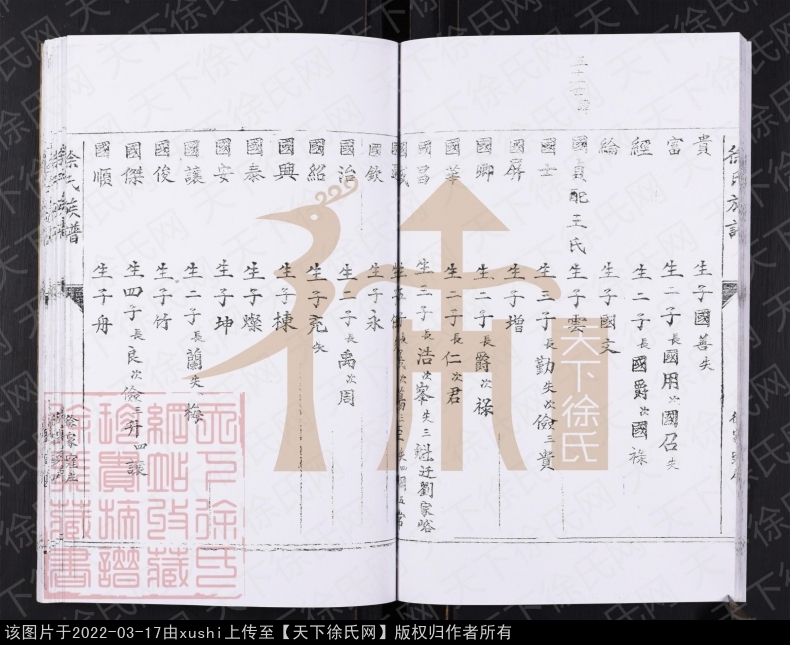 徐氏族譜
貴 生子國善失
富 生二子長國用次國召失
經 生二子長國爵次國祿
綸 生子國文
國貞配王氏 生子雲
國士 生三子長勤失次儉三貴
國屏 生子增
國卿 生二子長爵次祿
國華 生二子長仁次君
國昌 生三子長浩次峯失三魁迁劉家峪
國欽 生子永
國治 生二子長禹次周
國紹 生子尭失
國興 生子棟
國泰 生子燦
國安 生子坤
國讓 生二子長蘭失次梅
國俊 生子竹
國傑 生四子長良次儉三升四讓
國順 生子舟
徐氏族譜
天下徐氏
天下徐氏網
该图片于2022-03-17由xushi上传至【天下徐氏网】版权归作者所有